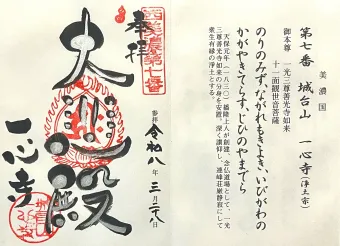 美濃国
第七番 城台山 一心寺(浄土宗)
御本尊 一光三尊善光寺如来
十一面観世音菩薩
のりのみず、ながれもきよき、いびがわの
かがやきてらす、じひのやまでら
天保元年(一八三〇)播隆上人が創建。念仏道場として、一光
三尊善光寺如来の分身を安置。深く讃仰し、連峰荘厳静寂にして
衆生有縁の浄土とする。
西美濃三十三霊場第七番
奉拝
大
殿
一心寺
参拝 令和八年三月二十八日